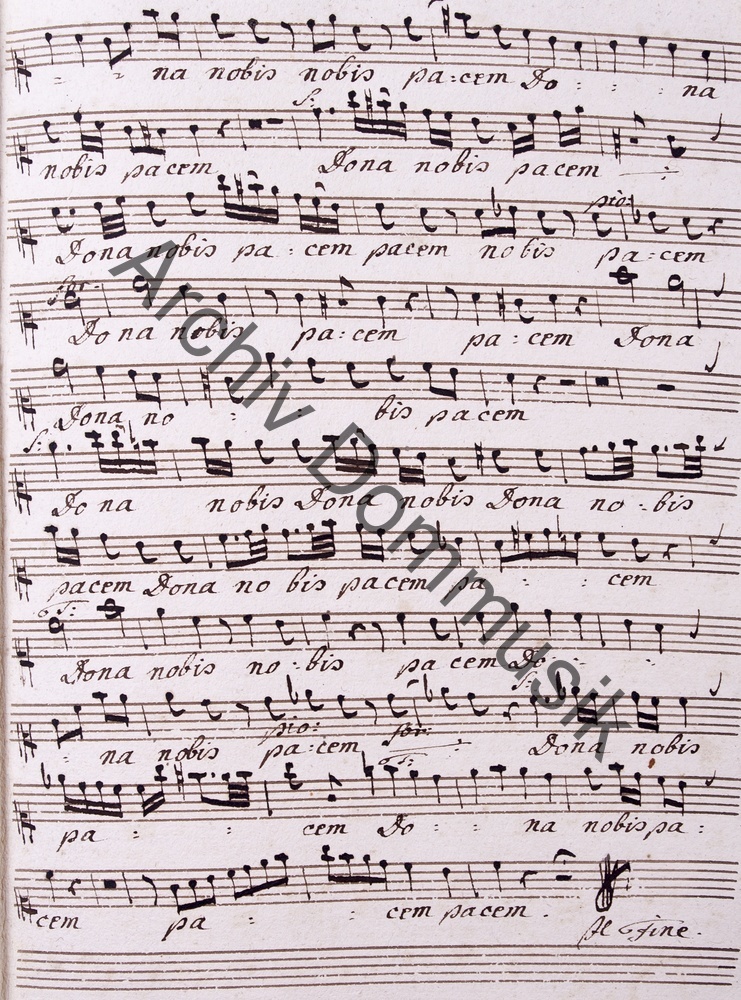 na nobis nobis pa:cem Do : : : na
nobis pacem Dona nobis pacem
Dona nobis pa : cem pacem nobis pa:cem
pio:
for:
Dona nobis pa:cem pa:cem Dona
Dona no : : bis pacem
Do na nobis Dona nobis Dona no : bis
pacem Dona no bis pacem pa : : cem
Dona nobis no : bis pacem Do : :
: na nobis pa:cem Dona nobis
pio: for:
pa : : cem Do : : na nobis pa :
cem pa : : cem pacem.
Il Fine.
Archiv Dommusik